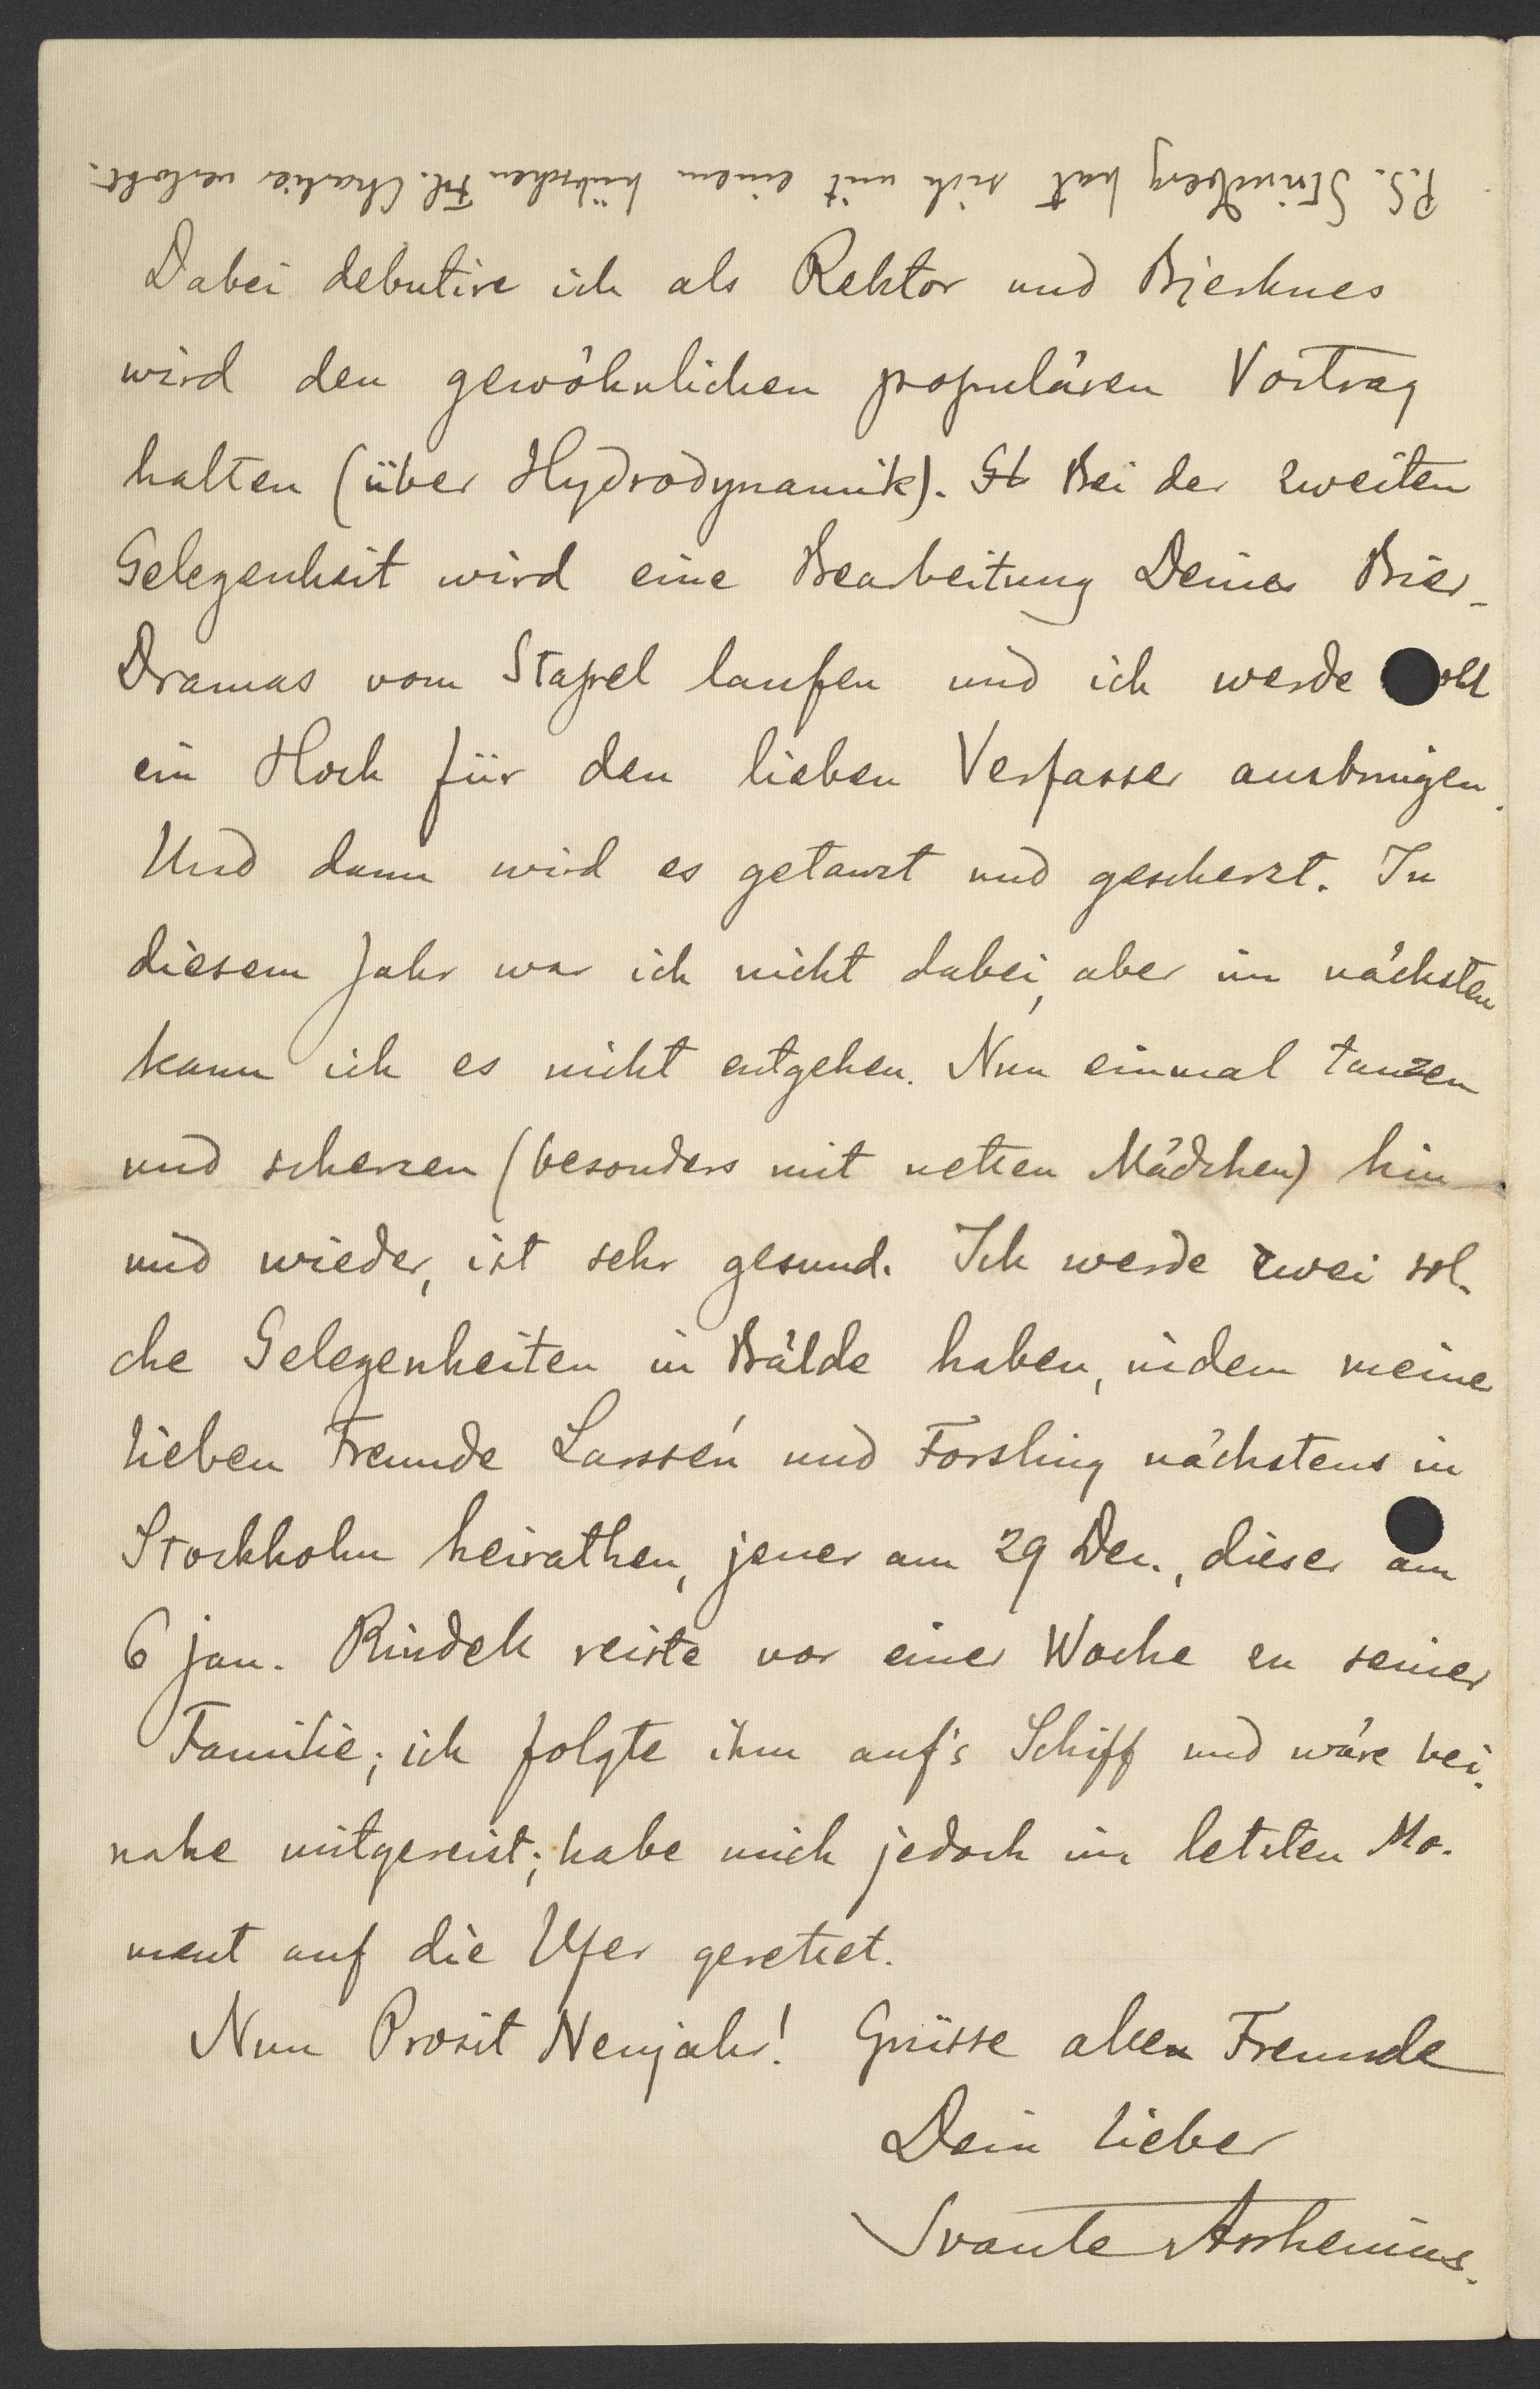 P.S. Strindberg hat sich mit einem hübschen Frl. Charlier verlobt.
Dabei debutire ich als Rektor und Bjerknes
wird den gewöhnlichen populären Vortrag
halten (über Hydrodynamik). Bei der zweiten
Gelegenheit wird eine Bearbeitung Deines Bier-
Dramas vom Stapel laufen und ich werde
ein Hoch für den lieben Verfasser ausbringen.
Und dann wird es getanzt und gescherzt. In
diesem Jahr war ich nicht dabei, aber im nächsten
kann ich es nicht entgehen. Nun einmal tanzen
und scherzen (besonders mit netten Mädchen) hin
und wieder, ist sehr gesund. Ich werde zwei sol-
che Gelegenheiten in Bälde haben, indem meine
lieben Freunde Larssén und Forsling nächstens in
Stockholm heirathen, jener am 29 Dez., dieser am
6 jan. Rindell reiste vor einer Woche zu seiner
Familie; ich folgte ihm auf's Schiff und wäre bei-
nahe mitgereist; habe mich jedoch im letzten Mo-
ment auf die Ufer gerettet.
Nun Prosit Neujahr! Grüsse allen Freunde
Dein lieber
Svante Arrhenius.